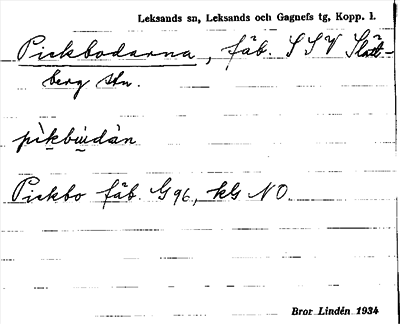 Leksands sn, Leksands och Gagnefs tg, Kopp. l.
Pickbodarna, fäb. SSV Slätt-
berg stn.
pìkbu̠dàn
Pickbo fäb. G 96, kG NO.
Bror Lindén 1934